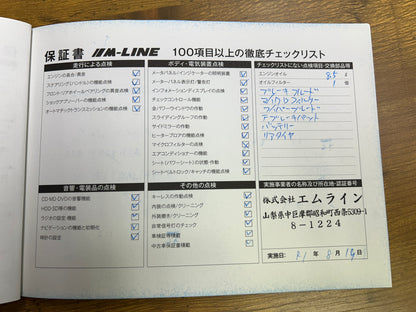 保証書 M-LINE 100項目以上の徹底チェックリスト
走行による点検
エンジンの具合・異音
ステアリング(ハンドル)の機能点検
フロント・リアホイールベアリングの異音点検
ショックアブソーバーの機能点検
オートマチックトランスミッションの機能点検
音響・電装品の点検
CD・MD・DVDの音響機能
HDD・SD等の機能
ラジオの設定・機能
ナビゲーションの機能と初期化
時計の設定
ボディ・電気装置点検
メータパネル・インジケーターの照明装置
メータパネル表示灯/警告灯
インフォメーションディスプレイの点検
チェックコントロール機能
全パワーウインドウの作動
スライディングルーフの作動
サイドミラーの作動
ヒーターブロアの機能点検
マイクロフィルターの点検
エアコンディショナーの機能
シート(パワーシート)の状態・作動
シートベルトロック/キャッチの機能点検
その他の点検
キーレスの作動点検
内装の点検/クリーニング
外装磨き/クリーニング
非常信号灯のチェック
車検証等積載
中古車保証書積載
チェックリストにない点検項目・交換部品等
エンジンオイル 8.5 ℓ
オイルフィルター 1 個
ブレーキフルード
マイクロフィルター
ワイパーブレード
ブレーキパット
バッテリー
リアタイヤ
実施事業者の名称及び所在地・認証番号
株式会社エムライン
山梨県中巨摩郡昭和町西条5309-1
8-1224
実施日: R1 年 8 月 19 日